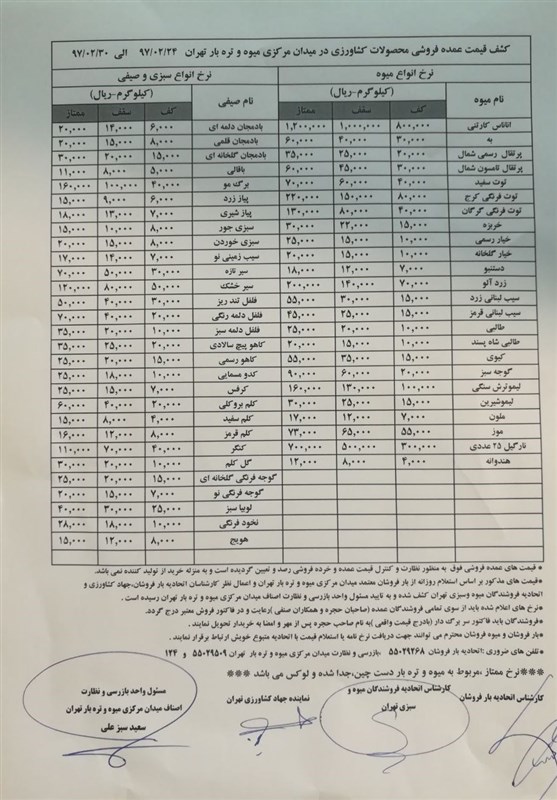 کشف قیمت عمده فروشی محصولات کشاورزی در میدان مرکزی میوه و تره بار تهران ۹۷/۰۲/۲۴ الی ۹۷/۰۲/۳۰
نرخ انواع میوه نرخ انواع سبزی و صیفی
نام میوه (کیلوگرم-ریال) نام صیفی (کیلوگرم-ریال)
کف سقف ممتاز کف سقف ممتاز
اناناس کارتنی ۸۰۰,۰۰۰ ۱,۰۰۰,۰۰۰ ۱,۲۰۰,۰۰۰ بادمجان دلمه ای ۶,۰۰۰ ۱۴,۰۰۰ ۲۰,۰۰۰
به ۳۰,۰۰۰ ۴۰,۰۰۰ ۶۰,۰۰۰ بادمجان قلمی ۸,۰۰۰ ۱۵,۰۰۰ ۲۰,۰۰۰
پرتقال رسمی شمال ۲۰,۰۰۰ ۲۵,۰۰۰ ۳۵,۰۰۰ بادمجان گلخانه ای ۱۵,۰۰۰ ۲۰,۰۰۰ ۳۰,۰۰۰
پرتقال تامسون شمال ۳۰,۰۰۰ ۴۵,۰۰۰ ۶۰,۰۰۰ باقالی ۵,۰۰۰ ۸,۰۰۰ ۱۱,۰۰۰
توت سفید ۴۰,۰۰۰ ۶۰,۰۰۰ ۷۰,۰۰۰ برگ مو ۴۰,۰۰۰ ۱۰۰,۰۰۰ ۱۶۰,۰۰۰
توت فرنگی کرج ۸۰,۰۰۰ ۱۵۰,۰۰۰ ۲۲۰,۰۰۰ پیاز زرد ۶,۰۰۰ ۹,۰۰۰ ۱۵,۰۰۰
توت فرنگی گرگان ۴۰,۰۰۰ ۸۰,۰۰۰ ۱۳۰,۰۰۰ پیاز شیری ۷,۰۰۰ ۱۳,۰۰۰ ۱۸,۰۰۰
خربزه ۱۵,۰۰۰ ۲۲,۰۰۰ ۳۰,۰۰۰ سبزی جور ۸,۰۰۰ ۱۰,۰۰۰ ۱۵,۰۰۰
خیار رسمی ۱۰,۰۰۰ ۱۵,۰۰۰ ۲۵,۰۰۰ سبزی خوردن ۸,۰۰۰ ۱۵,۰۰۰ ۲۰,۰۰۰
خیار گلخانه ۱۰,۰۰۰ ۱۵,۰۰۰ ۲۰,۰۰۰ سیب زمینی نو ۷,۰۰۰ ۱۴,۰۰۰ ۱۷,۰۰۰
دستنبو ۷,۰۰۰ ۱۲,۰۰۰ ۱۸,۰۰۰ سیر تازه ۳۰,۰۰۰ ۵۰,۰۰۰ ۷۰,۰۰۰
زرد آلو ۷۰,۰۰۰ ۱۴۰,۰۰۰ ۲۰۰,۰۰۰ سیر خشک ۵۰,۰۰۰ ۸۰,۰۰۰ ۱۲۰,۰۰۰
سیب لبنانی زرد ۱۵,۰۰۰ ۳۰,۰۰۰ ۵۵,۰۰۰ فلفل تند ریز ۳۰,۰۰۰ ۴۰,۰۰۰ ۵۰,۰۰۰
سیب لبنانی قرمز ۱۵,۰۰۰ ۲۵,۰۰۰ ۴۵,۰۰۰ فلفل دلمه رنگی ۲۰,۰۰۰ ۴۰,۰۰۰ ۷۰,۰۰۰
طالبی ۱۰,۰۰۰ ۲۰,۰۰۰ ۲۵,۰۰۰ فلفل دلمه سبز ۱۰,۰۰۰ ۲۰,۰۰۰ ۳۵,۰۰۰
طالبی شاه پسند ۱۰,۰۰۰ ۱۵,۰۰۰ ۲۰,۰۰۰ کاهو پیچ سالادی ۲۰,۰۰۰ ۲۵,۰۰۰ ۳۵,۰۰۰
کیوی ۱۵,۰۰۰ ۳۵,۰۰۰ ۵۵,۰۰۰ کاهو رسمی ۱۵,۰۰۰ ۲۰,۰۰۰ ۲۵,۰۰۰
گوجه سبز ۲۰,۰۰۰ ۶۰,۰۰۰ ۹۰,۰۰۰ کدو مسمایی ۱۰,۰۰۰ ۱۸,۰۰۰ ۲۵,۰۰۰
لیموترش سنگی ۱۰۰,۰۰۰ ۱۳۰,۰۰۰ ۱۶۰,۰۰۰ کرفس ۷,۰۰۰ ۱۵,۰۰۰ ۲۵,۰۰۰
لیموشیرین ۱۵,۰۰۰ ۲۵,۰۰۰ ۳۰,۰۰۰ کلم بروکلی ۲۰,۰۰۰ ۴۰,۰۰۰ ۶۰,۰۰۰
ملون ۷,۰۰۰ ۱۲,۰۰۰ ۱۷,۰۰۰ کلم سفید ۴,۰۰۰ ۸,۰۰۰ ۱۵,۰۰۰
موز ۵۵,۰۰۰ ۶۵,۰۰۰ ۷۳,۰۰۰ کلم قرمز ۸,۰۰۰ ۱۲,۰۰۰ ۱۶,۰۰۰
نارگیل ۲۵ عددی ۳۰۰,۰۰۰ ۵۰۰,۰۰۰ ۷۰۰,۰۰۰ کنگر ۴۰,۰۰۰ ۷۰,۰۰۰ ۱۱۰,۰۰۰
هندوانه ۴,۰۰۰ ۸,۰۰۰ ۱۲,۰۰۰ گل کلم ۱۰,۰۰۰ ۲۰,۰۰۰ ۳۰,۰۰۰
گوجه فرنگی گلخانه ای ۱۵,۰۰۰ ۲۰,۰۰۰ ۲۵,۰۰۰
گوجه فرنگی نو ۷,۰۰۰ ۱۵,۰۰۰ ۲۰,۰۰۰
لوبیا سبز ۲۵,۰۰۰ ۳۰,۰۰۰ ۴۰,۰۰۰
نخود فرنگی ۱۰,۰۰۰ ۱۸,۰۰۰ ۲۸,۰۰۰
هویج ۸,۰۰۰ ۱۲,۰۰۰ ۱۵,۰۰۰
*قیمت های عمده فروشی فوق به منظور نظارت و کنترل قیمت عمده و خرده فروشی رصد و تعیین گردیده است و به منزله خرید از تولید کننده نمی باشد.
*قیمت های مذکور بر اساس استعلام روزانه از بار فروشان معتمد میدان مرکزی میوه و تره بار تهران و اعمال نظر کارشناسان اتحادیه بار فروشان،جهاد کشاورزی و
اتحادیه فروشندگان میوه وسبزی تهران کشف شده و به تایید مسئول واحد بازرسی و نظارت اصناف میدان مرکزی میوه و تره بار تهران رسیده است .
*نرخ های اعلام شده باید از سوی تمامی فروشندگان عمده (صاحبان حجره و همکاران صنفی )رعایت و در فاکتور فروش معتبر درج گردد.
*فروشندگان باید فاکتور سر برگ دار (بادرج قیمت واقعی )به نام صاحب حجره پس از مهر و امضا به خریدار تحویل نمایند .
*بار فروشان و میوه فروشان محترم می توانند جهت دریافت نرخ نامه یا استعلام قیمت با اتحادیه متبوع خویش ارتباط برقرار نمایند .
*تلفن های ضروری :اتحادیه بار فروشان ۵۵۰۴۹۲۶۸ ،بازرسی و نظارت میدان مرکزی میوه و تره بار تهران ۵۵۰۲۹۵۰۹ و ۱۲۴
***نرخ ممتاز ،مربوط به میوه و تره بار دست چین،جدا شده و لوکس می باشد ***
کارشناس اتحادیه بار فروشان
کارشناس اتحادیه فروشندگان میوه و
سبزی تهران
نماینده جهاد کشاورزی تهران
مسئول واحد بازرسی و نظارت
اصناف میدان مرکزی میوه و تره بار تهران
سعید سبز علی